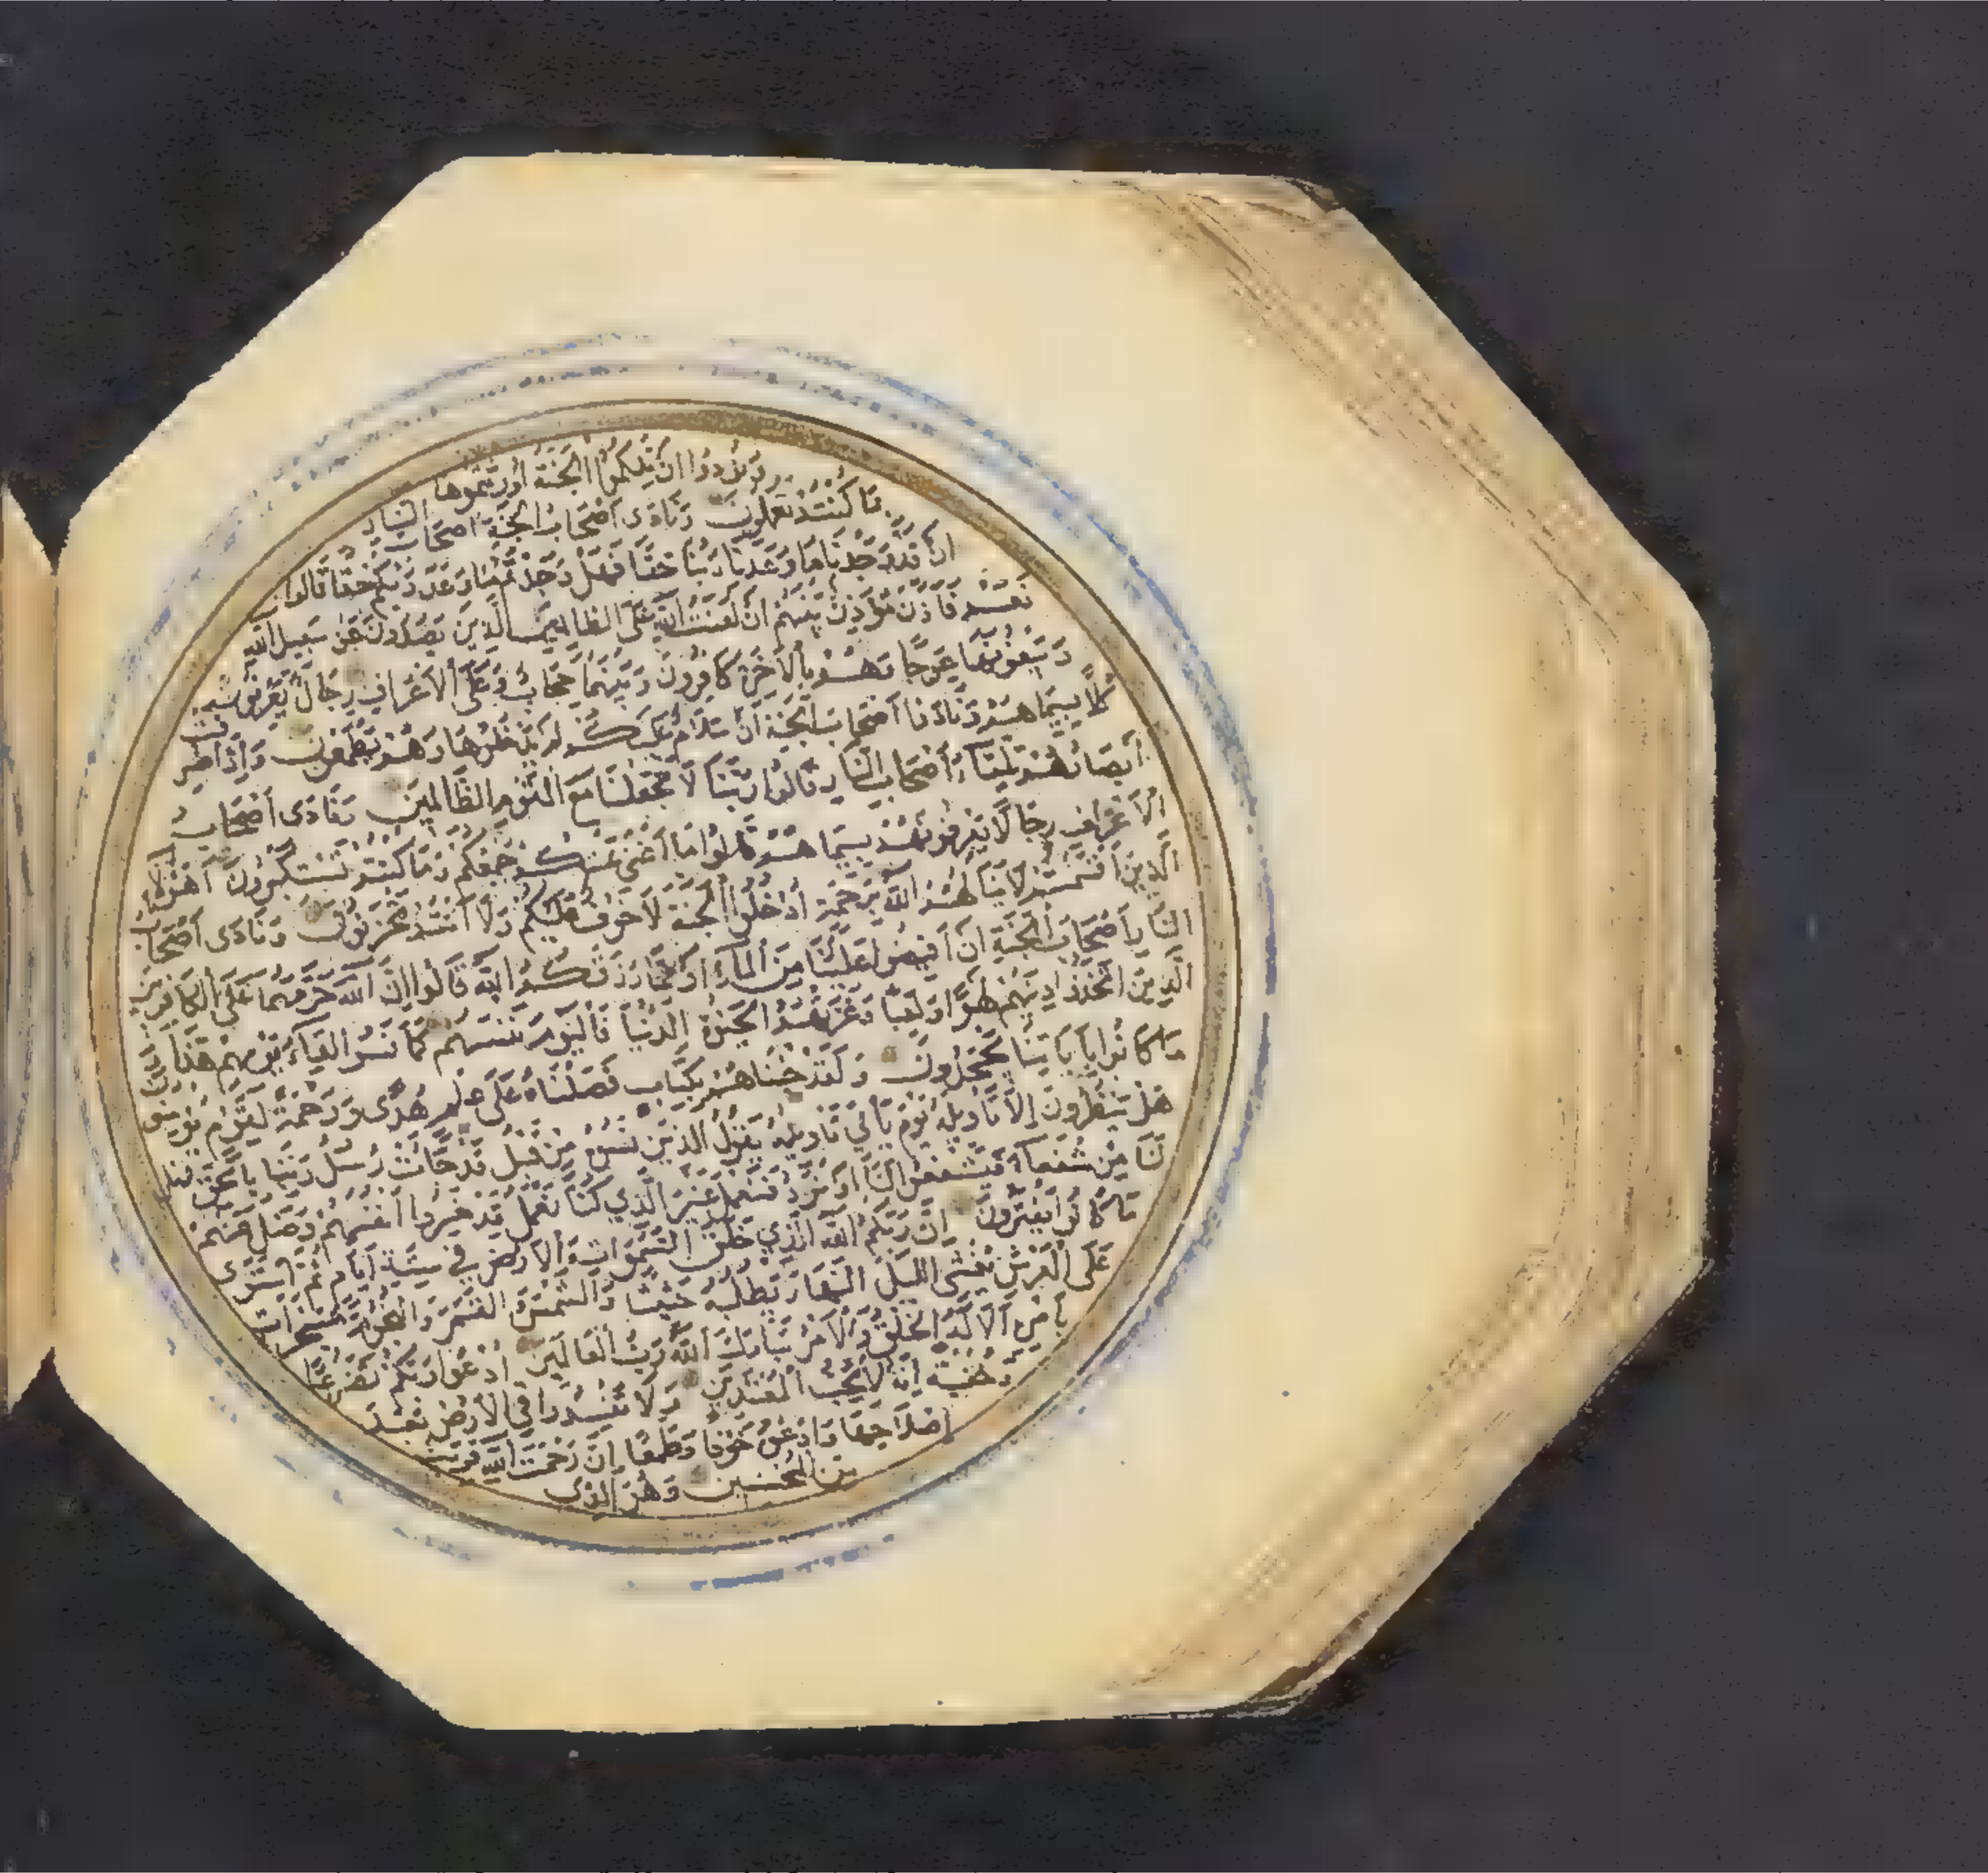 ونودوا ان تلكموا الجنة أورثتموها
بما كنتم تعملون ونادى أصحاب الجنة أصحاب النار
ان قد وجدنا ما وعدنا ربنا حقا فهل وجدتم ما وعد ربكم حقا قالوا
نعم فأذن مؤذن بينهم ان لعنت الله على الظالمين الذين يصدون عن سبيل الله
ويبغونها عوجا وهم بالآخرة كافرون وبينهما حجاب وعلى الأعراف رجال يعرفون
كلا بسيماهم ونادوا أصحاب الجنة ان سلام عليكم لم يدخلوها وهم يطمعون وإذا صرفت
أبصارهم تلقاء أصحاب النار قالوا ربنا لا تجعلنا مع القوم الظالمين ونادى أصحاب
الأعراف رجالا يعرفونهم بسيماهم قالوا ما أغنى عنكم جمعكم وما كنتم تستكبرون أهؤلاء
الذين أقسمتم لا ينالهم الله برحمة ادخلوا الجنة لا خوف عليكم ولا أنتم تحزنون ونادى أصحاب
النار أصحاب الجنة ان أفيضوا علينا من الماء أو مما رزقكم الله قالوا ان الله حرمهما على الكافرين
الذين اتخذوا دينهم لهوا ولعبا وغرتهم الحيوة الدنيا فاليوم ننسهم كما نسوا لقاء يومهم هذا
وما كانوا بآياتنا يجحدون ولقد جئناهم بكتاب فصلناه على علم هدى ورحمة لقوم يؤمنون
هل ينظرون إلا تأويله يوم يأتي تأويله يقول الذين نسوه من قبل قد جاءت رسل ربنا بالحق فهل
لنا من شفعاء فيشفعوا لنا أو نرد فنعمل غير الذي كنا نعمل قد خسروا أنفسهم وضل عنهم
ما كانوا يفترون ان ربكم الله الذي خلق السموات والأرض في ستة أيام ثم استوى
على العرش يغشى الليل النهار يطلبه حثيثا والشمس والقمر والنجوم مسخرات
بأمره ألا له الخلق والأمر تبارك الله رب العالمين ادعوا ربكم تضرعا
وخفية إنه لا يحب المعتدين ولا تفسدوا في الأرض بعد
إصلاحها وادعوه خوفا وطمعا إن رحمت الله قريب
من المحسنين وهو الذي